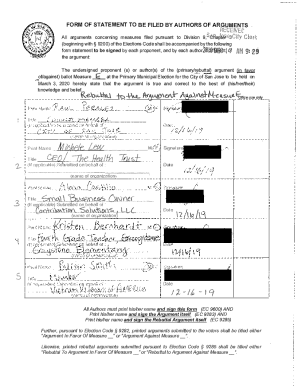 FORM OF STATEMENT TO BE FILED BY AUTHORS OF ARGUMENTS
RECEIVED
San Jose City Clerk
All arguments concerning measures filed pursuant to Division 9, Chapter
(beginning with § 9200) of the Elections Code shall be accompanied by the following
form statement to be signed by each proponent, and by each author
9:29
The undersigned proponent (s) or author(s) of the (primary/rebuttal) argument (in favor
of/against) ballot Measure E at the Primary Municipal Election for the City of San Jose to be held on
March 3, 2020 hereby state that the argument is true and correct to the best of (his/her/their)
knowledge and belief.
Rebuttal to the Argument Against Measure
1
Print Name
Signature
Title Council Member
Date
(if applicable) Submitted on behalf of
12/16/19
City of San Jose
(name of organization)
2
Print Name Michele Lew
Signature
Title CEO/ The Health Trust
Date
(if applicable) Submitted on behalf of
12/16/19
(name of organization)
3
Print Name
Signature
Title Small Business Owner
Date
(if applicable) Submitted on behalf of
Contribution Solutions, LLC
12/16/19
(name of organization)
4
Kristen Bernhardt
Signature
Title Fourth Grade Teacher,
Date
Graystone Elementary
12/16/19
5
Print Name
Smith
Signature
Title Member
Date
Vietnam Veterans of America
12-16-19
All Authors must print his/her name and sign this form (EC 9600) AND
Print his/her name and sign the Argument itself (EC 9283) AND
Print his/her name and sign the Rebuttal Argument itself (EC 9285)
Further, pursuant to Election Code § 9282, printed arguments submitted to the voters shall be titled either
"Argument In Favor Of Measure __" or "Argument Against Measure __".
Likewise, printed rebuttal arguments submitted pursuant to Election Code § 9285 shall be titled either
"Rebuttal To Argument In Favor Of Measure __" or "Rebuttal To Argument Against Measure __".